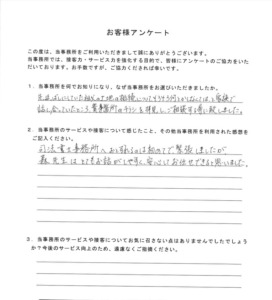 お客様アンケート
この度は、当事務所をご利用いただきまして誠にありがとうございます。
当事務所では、接客力・サービス力を強化する目的で、皆様にアンケートのご協力をいた
だいております。お手数ですが、ご協力くだされば幸いです。
1．当事務所を何でお知りになり、なぜ当事務所をお選びいただきましたか。
2．当事務所のサービスや接客について感じたこと、その他当事務所を利用された感想を
ご記入ください。
司法書士事務所へお訪ねるのは初めてで緊張しましたが
森先生はとてもお話がしやすく、安心してお任せできると思いました。
3．当事務所のサービスや接客についてお気に召さない点はありませんでしたでしょう
か？今後のサービス向上のため、遠慮なくご指摘ください。